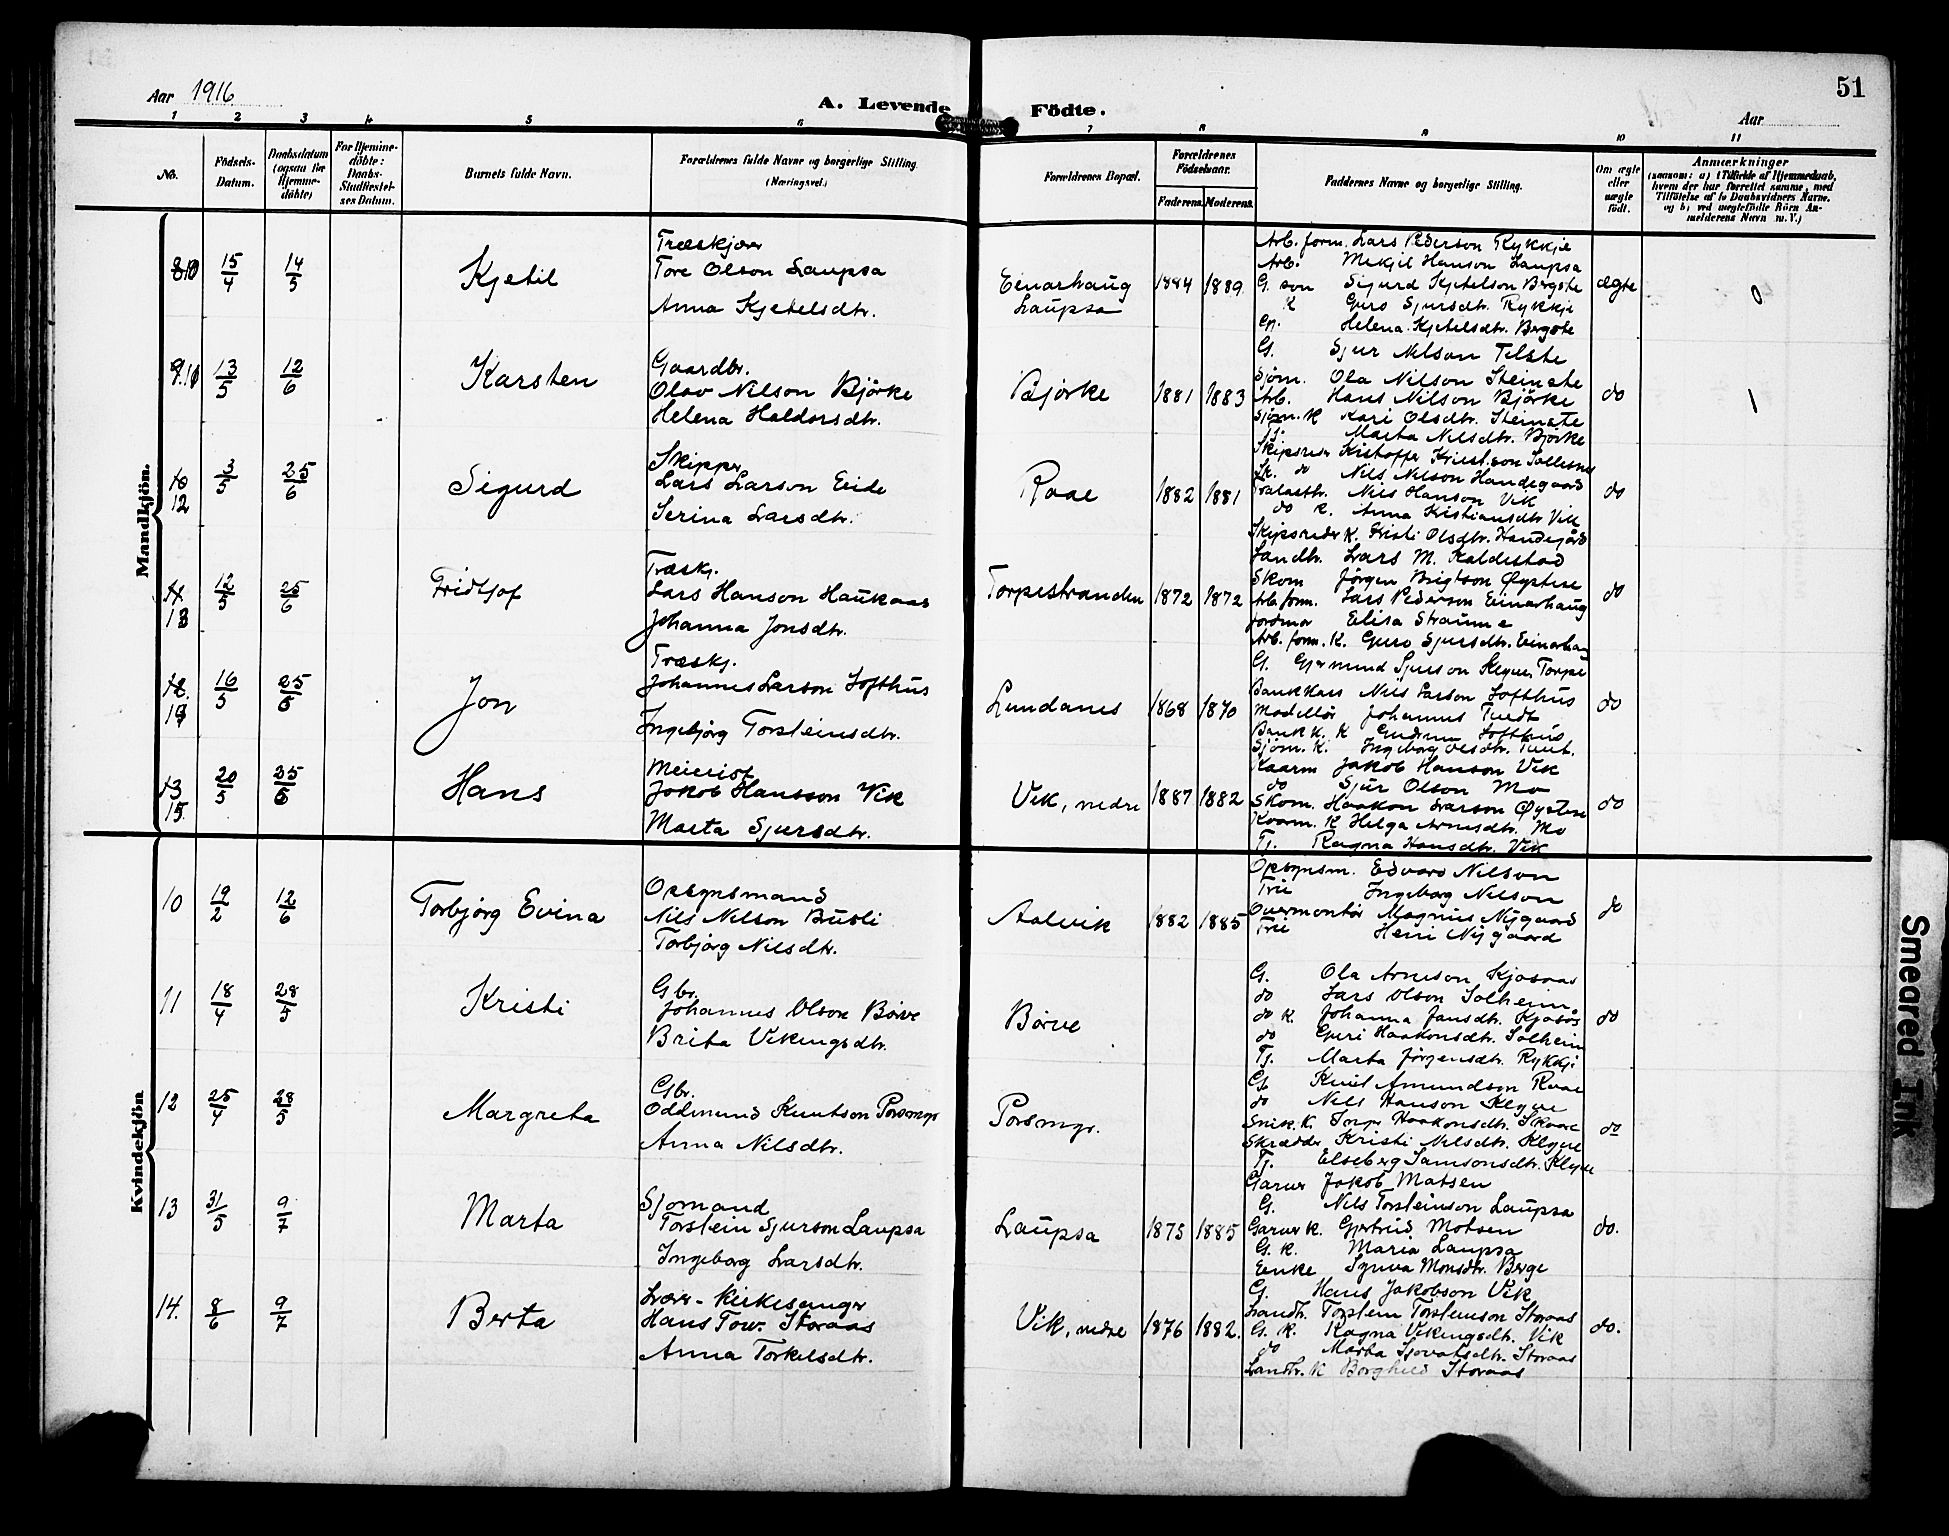 51
Aar 1916
A. Levende Födte.
Aar
1 2 3 4 5 6 7 8 9 10 11
No.
Födsels-
Datum.
Daabsdatum
(ogsaa for
Hjemme-
döbte)
For Hjemme-
döbte:
Daabs-
Stadfæstel-
ses Datum.
Barnets fulde Navn.
Forældrenes fulde Navne og borgerlige Stilling.
(Næringsvei.)
Forældrenes Bopæl.
Forældrenes
Födselsaar.
Faderens. Moderens.
Faddernes Navne og borgerlige Stilling.
Om ægte
eller
uægte
födt.
Anmærkninger
(saasom: a) i Tilfælde af Hjemmedaab,
hvem der har forrettet samme, med
Tilföielse af to Daabsvidners Navne,
og b) ved uægtefödte Börn An-
melderens Navn m. V.)
Mandkjön.
15/4 14/5 Kjetil
Træskjærer
Tore Olson Laupsa
Anna Kjetelsdtr.
Einarhaug
Laupsa
1884 1889
Arb. form. Lars Pederson Rykkje
Arb. Mikjel Hanson Laupsa
G. søn Sigurd Kjetelson Bergste
K Guro Sjursdtr. Rykkje
Helena Kjetelsdtr. Bergste
ægte
0
13/5 12/6 Karsten
Gaardbr.
Olav Nilson Björke
Helena Haldorsdtr.
Björke
1881 1883
G. Sjur Nilson Telste
Sjöm. Ola Nilson Steinste
Arb. Hans Nilson Björke
Sjöm. K Kari Olsdtr. Steinste
Tj. Marta Nilsdtr. Björke
do
1
10
12
3/5 25/6 Sigurd
Skipper
Lars Larson Eide
Serina Larsdtr.
Raae
1882 1881
Skipsreder Kristoffer
do Nils Nilson Handegaard
Nils Hanson Vik
do K. Anna Kristiansdtr Vik
Skipsreder K. Kristi Olsdtr. Handegård
do
11
13
12/5 25/6 Fridtjof
Træskj.
Lars Hanson Haukaas
Johanna Jonsdtr.
Torpestranden
1872 1872
Landhr. Lars M. Kaldestad
Skom Jörgen Brigtson Øystese
Arb. form. Lars Pederson Einarhaug
Jordmor Elisa Straume
Arb. form. K. Guro Sjursdtr. Einarhaug
do
12.
14
16/5 25/6 Jon
Træskj.
Johannes Larson Lofthus
Ingebjørg Torsteinsdtr.
Lundanes
1868 1870
G. Gjermund Sjurson Torpe
Bankkass Nils Larson Lofthus
Modellör Johannes Tvedt
Bank k. K Gudrun Lofthus
Sjöm. K. Ingeborg Olsdtr. Tvedt.
do
13
15.
20/5 25/6 Hans
Meierist
Jakob Hansson Vik
Marta Sjursdtr.
Vik, nedre
1887 1882
Kaarm Jakob Hanson Vik
do Sjur Olson Mo
Skom. Haakon Larson Øystese
Kaarm. K Helga Arnesdtr. Mo
Tj. Ragna Hansdtr. Vik
do
Kvindekjön
10 19/2 12/6 Torbjørg Evina
Opsynsmand
Nils Nilson Busli
Torbjørg Nilsdtr.
Aalvik
1882 1885
Opsynsm. Edvard Nilson
Frue Ingeborg Nilson
Overmontör Magnus Nygaard
Frue Henni Nygaard
do
11 18/4 28/5 Kristi
Gbr.
Johannes Olson Børve
Brita Vikingsdtr.
Börve
G. Ola Arneson Kjosaas
do Lars Olson Solheim
do K. Johanna Jansdtr. Kjosås
do Guri Haakonsdtr. Solheim
Tj. Marta Jörgensdtr. Rykkji
do
12 25/4 28/5 Margreta
Gbr.
Oddmund Knutson Porsmyr
Anna Nilsdtr.
Porsmyr.
G. Knut Amundson Raae
do Nils Hanson Klyve
Snik. K. Inger Haakonsdtr. Skaare
Skrædder Kristi Nilsdtr. Klyve
Tj. Elseberg Samsonsdtr. Klyve
do
13 31/5 9/7 Marta
Sjømand
Torstein Sjurson Laupsa
Ingeborg Larsdtr.
Laupsa
1875 1885
Garver Jakob Matsen
G. Nils Torsteinson Laupsa
Garver K. Gjertrud Matsen
G. K. Maria Laupsa
Enke Synva Monsdtr. Berge
do.
14. 8/6 9/7 Berta
Lærer - Kirkesanger
Hans Tow. Storaas
Anna Torkelsdtr.
Vik, nedre
1876 1882.
G. Hans Jakobson Vik
Landhr. Torstein Torsteinson Storaas
G. K. Ragna Vikingsdtr. Vik
do Marta Storaas
Landhr. K Borghild Storaas
do.
Smeared Ink